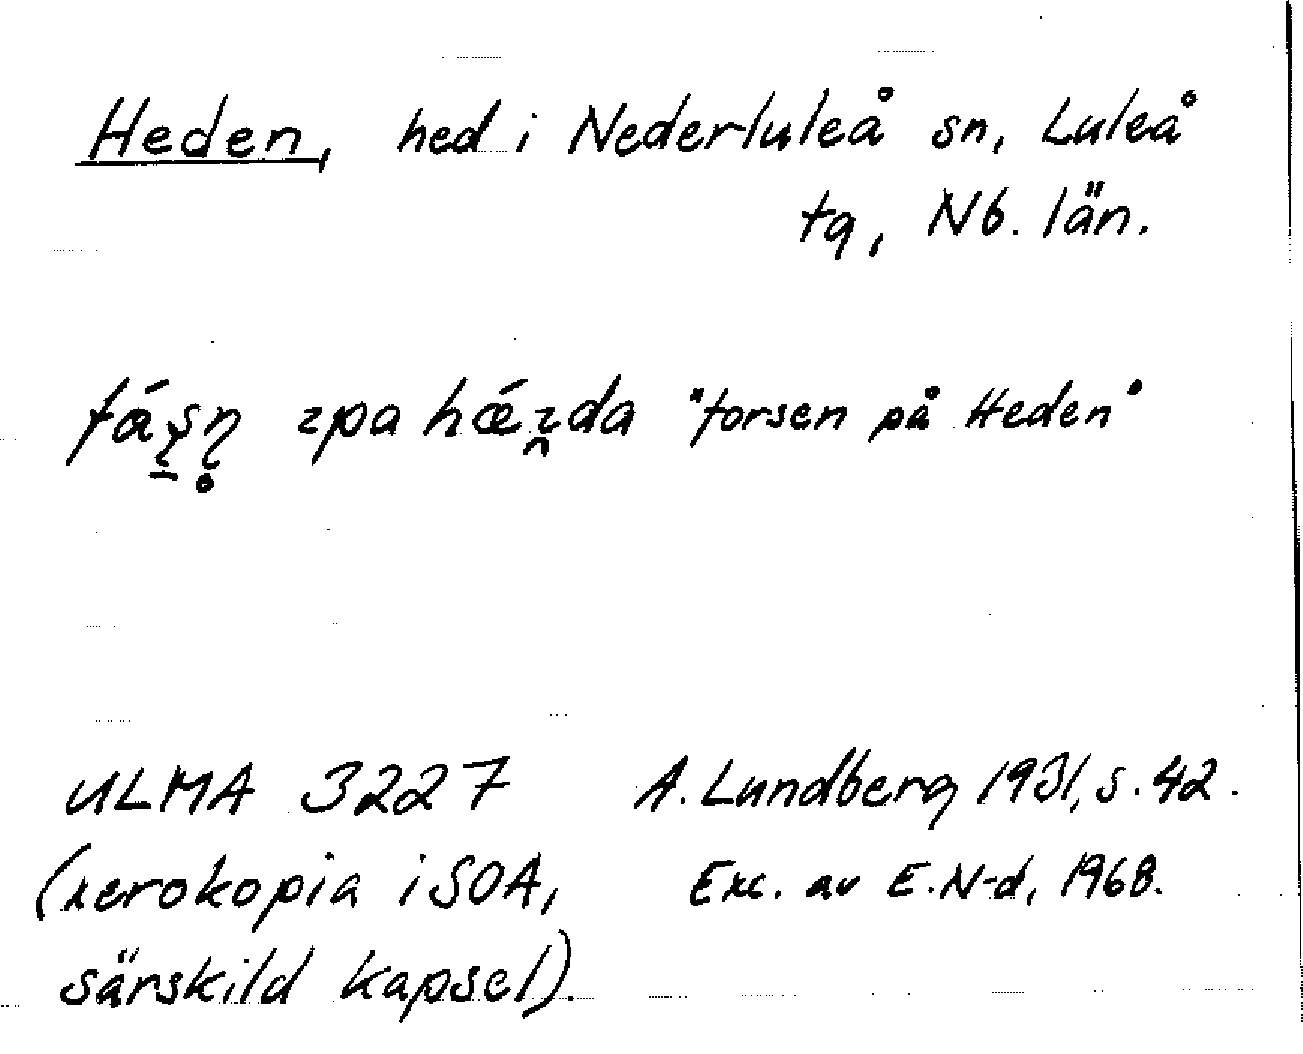 Heden, hed i Nederluleå sn, Luleå
tg, Nb. län.
"forsen på Heden"
ULMA 3227 A. Lundberg 1931, s. 42.
(xerokopia i SOA, Exc. av E. N-d, 1968.
särskild kapsel).